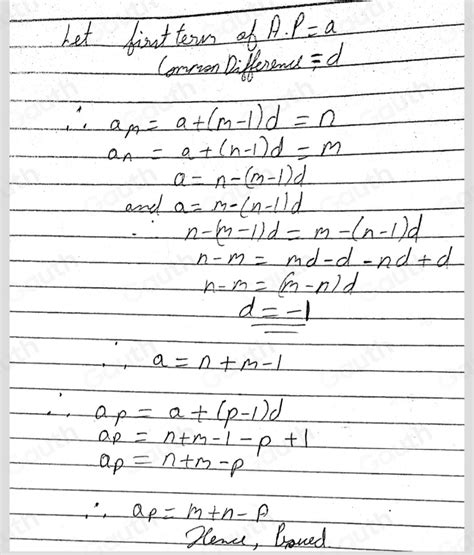 Let first term of A.P = a
Common Difference = d
∴ aₘ = a+(m-1)d = n
aₙ = a+(n-1)d = m
a = n-(m-1)d
and a = m-(n-1)d
∴ n-(m-1)d = m-(n-1)d
n-m = md-d-nd+d
n-m = (m-n)d
d = -1
∴ a = n+m-1
∴ aₚ = a+(p-1)d
aₚ = n+m-1-p+1
aₚ = n+m-p
∴ aₚ = m+n-p
Hence, Proved